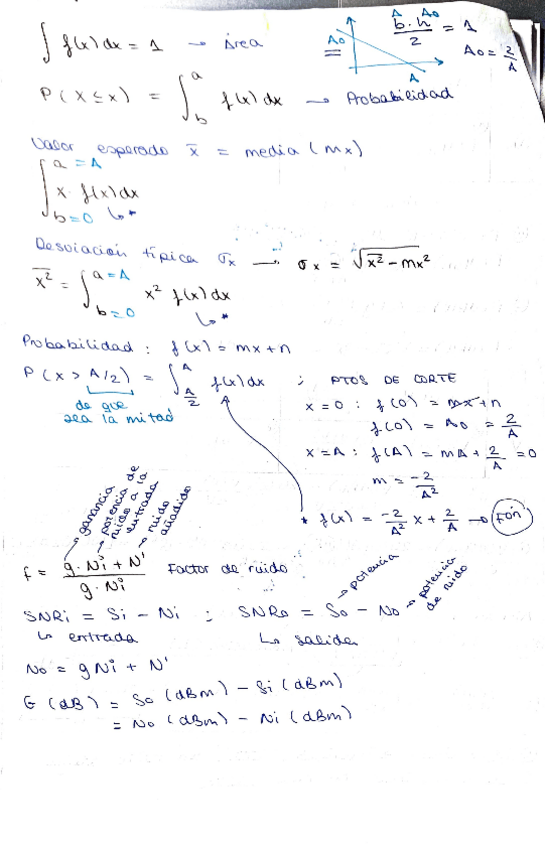 ∫ f(x) dx = 1 → área
A₀
A
b · h / 2 = 1
A A₀
A₀ = 2/A
P(X ≤ x) = ∫_b^a f(x) dx → Probabilidad
Valor esperado x̄ = media (mx)
∫_{b=0}^{a=A} x · f(x) dx
↳ *
Desviación típica σx → σx = √(x̄² − mx²)
x̄² = ∫_{b=0}^{a=A} x² f(x) dx
↳ *
Probabilidad : f(x) = mx + n
P(x > A/2) = ∫_{A/2}^A f(x) dx ;
de que
sea la mitad
PTOS DE CORTE
x = 0 : f(0) = mx + n
f(0) = A₀ = 2/A
x = A : f(A) = mA + 2/A = 0
m = −2/A²
* f(x) = −2/A² x + 2/A → Fón
ganancia
potencia de
ruido a la
entrada
ruido
añadido
f = (g · Ni + N') / (g · Ni) Factor de ruido
SNRi = Si − Ni ; SNRo = So − No
↳ entrada
↳ salida
potencia
potencia
de ruido
No = gNi + N'
G (dB) = So (dBm) − Si (dBm)
= No (dBm) − Ni (dBm)